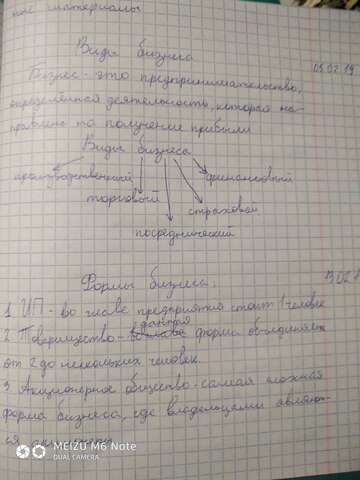 ные материалы.
Виды бизнеса
05.02.19
Бизнес - это предпринимательство,
определённая деятельность, которая на-
правлена на получение прибыли
Виды бизнеса
производственный
финансовый
торговый
страховой
посреднический
Формы бизнеса.
1 ИП - во главе предприятия стоит 1 человек
данная
2 Товарищество - форма объединяет
от 2 до нескольких человек.
3 Акционерное общество - самая сложная
форма бизнеса, где владельцами являют-
ся
MEIZU M6 Note
DUAL CAMERA